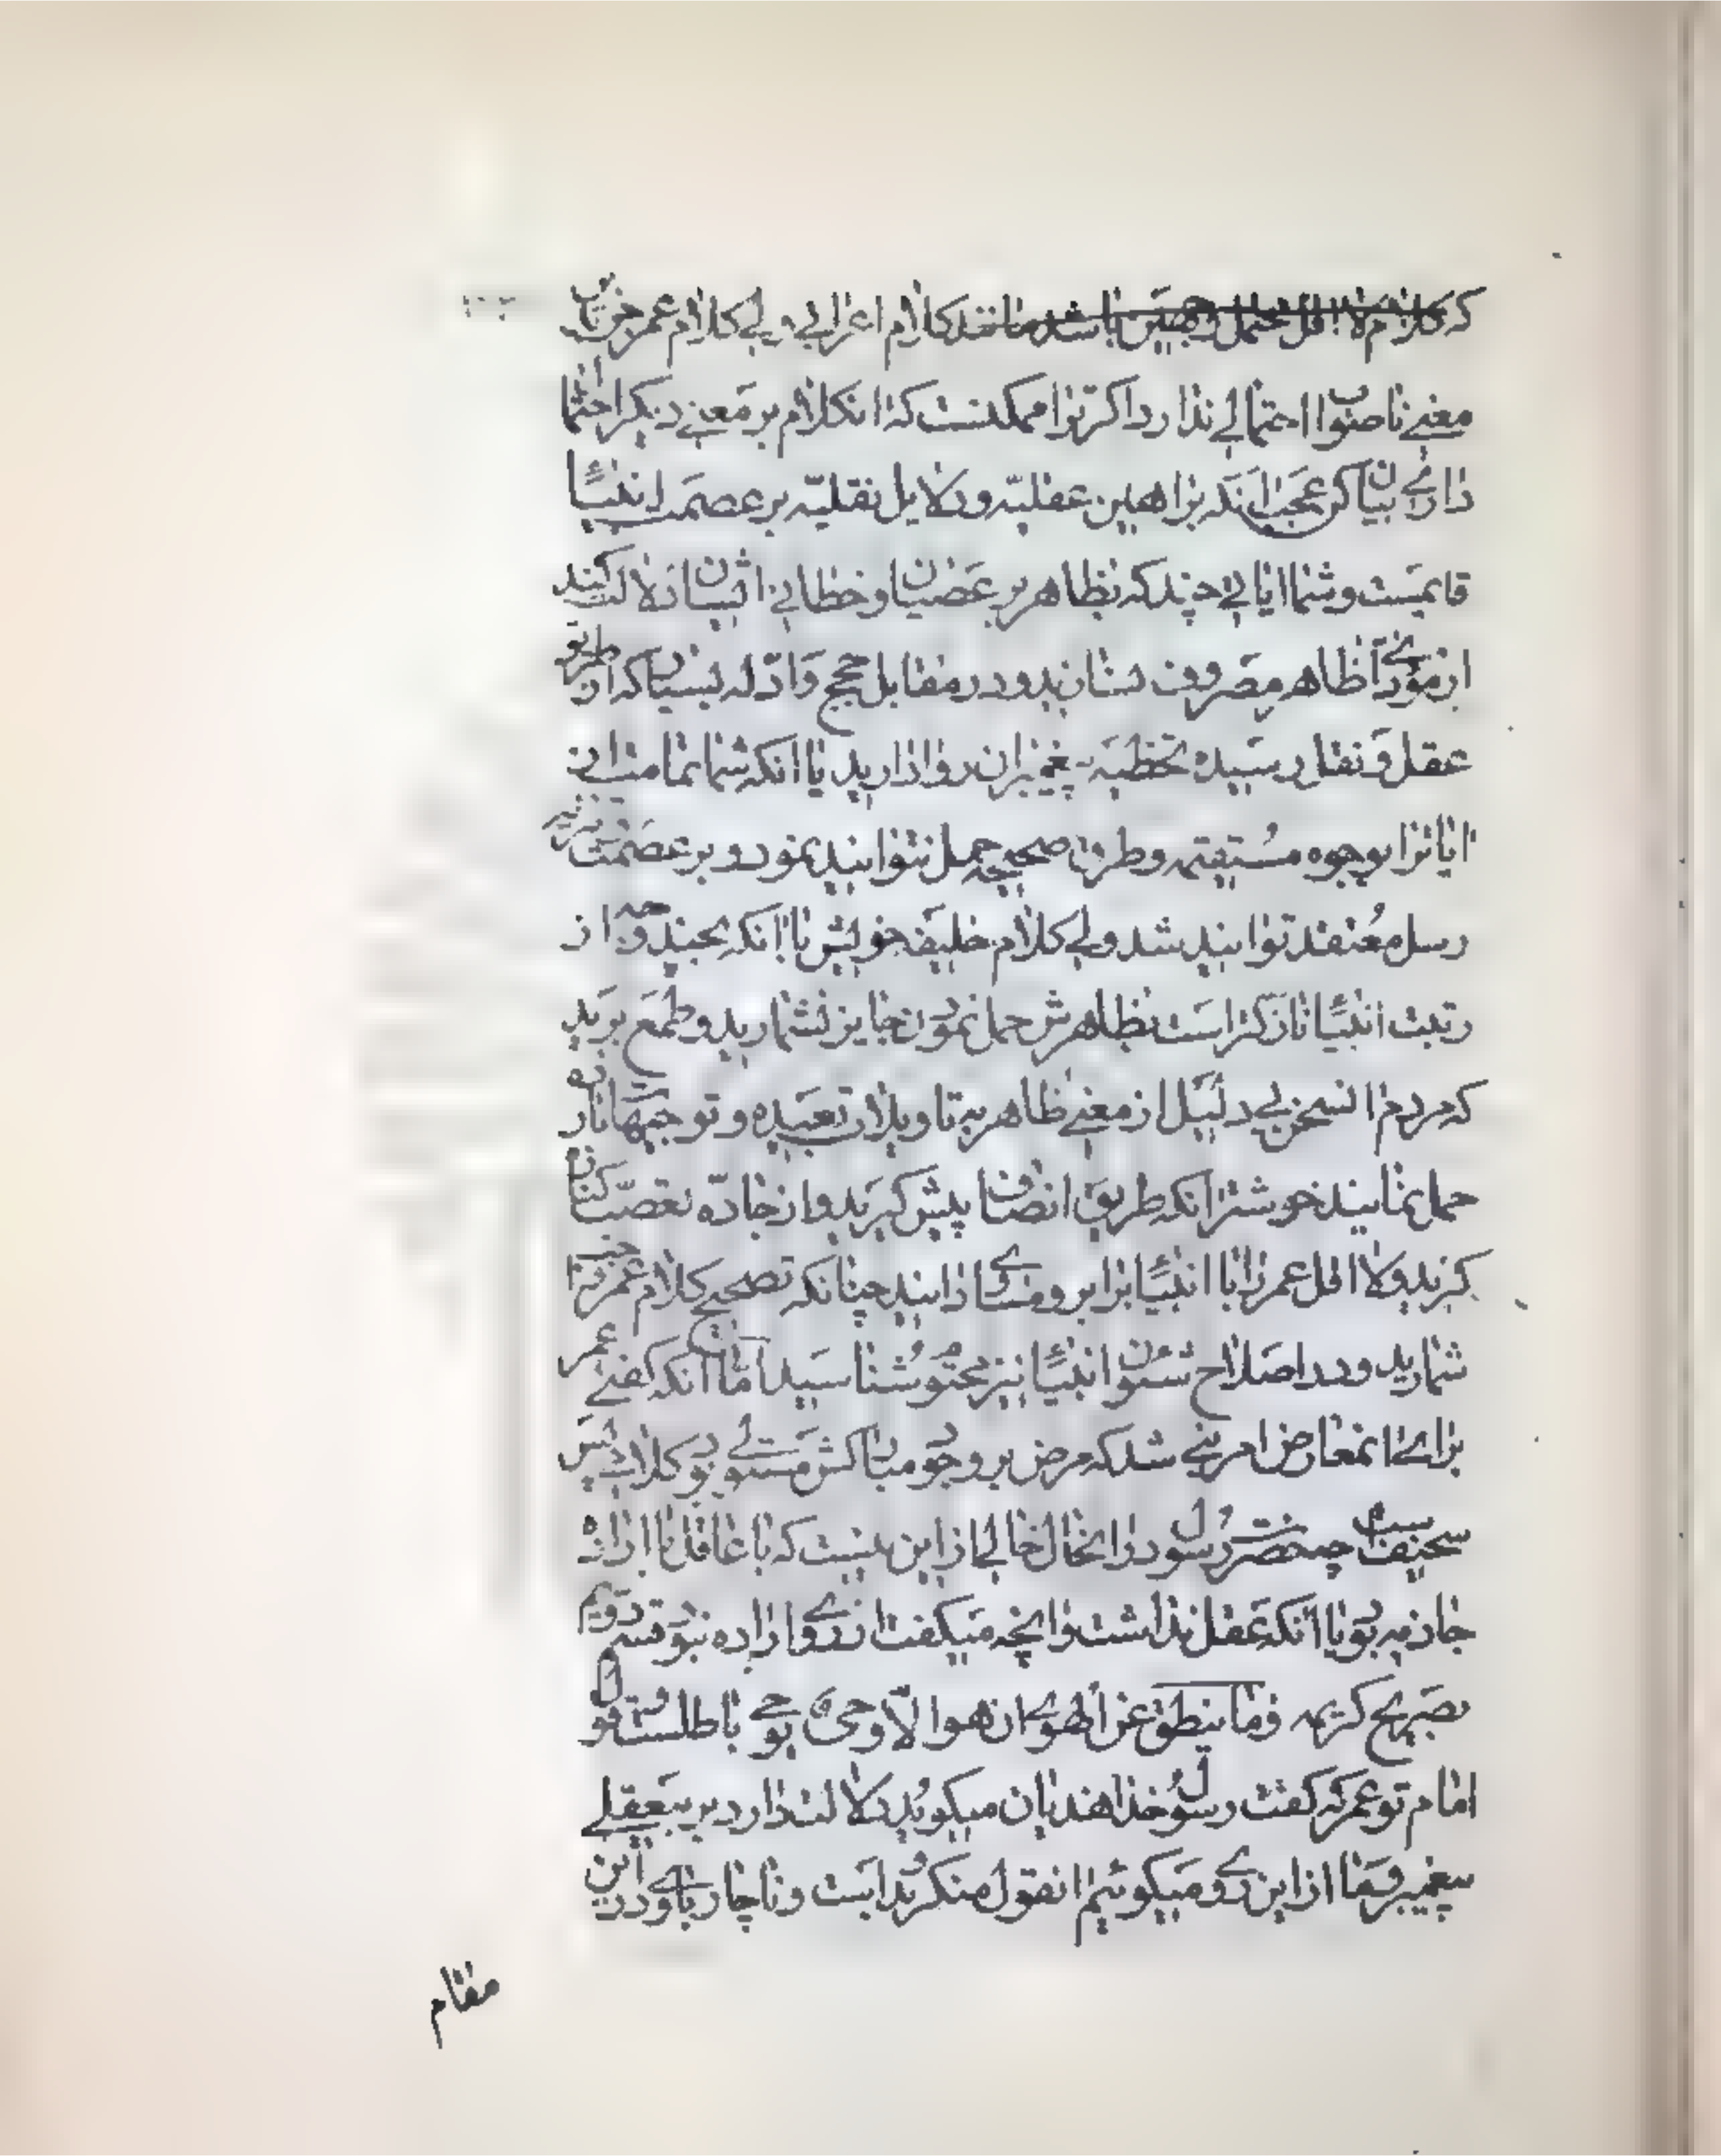 که کلام لا اقل محتمل وجهین باشد مانند کلام اعرابی ولی کلام عمر جز این
معنی ناصواب احتمالی ندارد اگر ترا ممکنست که انکلام بر معنی دیگر احتمال
داری بیان کن عجب انکه براهین عقلیّه و دلایل نقلیّه بر عصمت انبیا
قایمست و شما ایاتی چند که بظاهر بر عصیان و خطای ایشان دلالت کند
از مؤدای ظاهر مصروف نسازید و در مقابل حجج و ادله بسیار که از طریق
عقل و نقل رسیده تخطیه پیغمبران روا دارید یا انکه شما تمامت این
ایاترا بوجوه مستقیمه و طرق صحیحه حمل توانید نمود و بر عصمت
رسل معتقد توانید شد ولی کلام خلیفه خویش با انکه بچند وجه از
رتبت انبیا نازکتر است بظاهرش حمل نمودن جایز نشمارید و طمع برید
که مردم ان سخن بی دلیل از معنی ظاهر به تاویلات بعیده و توجیهات بارده
حمل نمایند خوشتر انکه طریق انصاف پیش گیرید و از جاده تعصب کناره
گزید ولا اقل عمر را با انبیا برابر و مساوی دانید چنانکه تصحیح کلام عمر
شمارید در اصلاح شئون انبیا نیز محتوم شناسید اما انکه گفتی عمر
برای ان معارض امر نبی شد که مرض بر وجود مبارکش مستولی بود کلامیست بس
سخیف است چه حضرت رسول در انحال خالی از این نیست که یا عاقل با اراده
جازمه بود یا انکه عقل نداشت وانچه میگفت از روی اراده نبود قسم دویم
بصریح کریمه وما ینطق عن الهوی ان هو الا وحی یوحی باطلست و قول
امام تو عمر که گفت رسول خدا هذیان میگوید دلالت دارد بر بیعقلی
پیغمبر و ما از این روی میگوئیم انقول منکر بد است و ناچار باوی در این
مقام